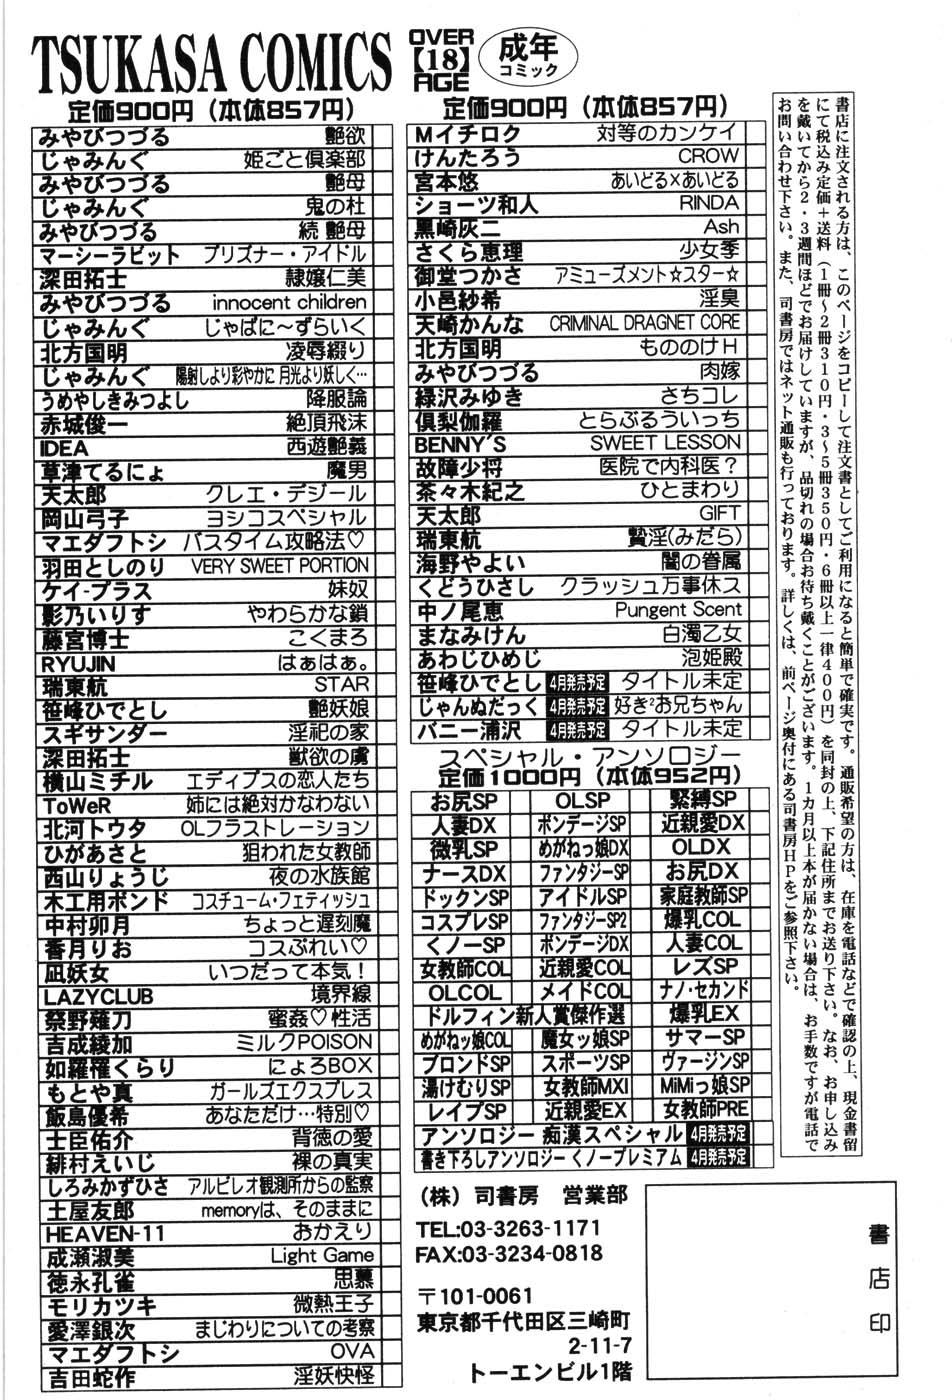 TSUKASA COMICS
OVER
【18】
AGE
成年
コミック
定価900円（本体857円）
みやびつづる 艶欲
じゃみんぐ 姫ごと倶楽部
みやびつづる 艶母
じゃみんぐ 鬼の杜
みやびつづる 続 艶母
マーシーラビット プリズナー・アイドル
深田拓士 隷嬢仁美
みやびつづる innocent children
じゃみんぐ じゃぱに〜ずらいく
北方国明 凌辱綴り
じゃみんぐ 陽射しより彩やかに 月光より妖しく…
うめやしきみつよし 降服論
赤城俊一 絶頂飛沫
IDEA 西遊艶義
草津てるにょ 魔男
天太郎 クレエ・デジール
岡山弓子 ヨシコスペシャル
マエダフトシ バスタイム攻略法♡
羽田としのり VERY SWEET PORTION
ケイ-プラス 妹奴
影乃いりす やわらかな鎖
藤宮博士 こくまろ
RYUJIN はぁはぁ。
瑞東航 STAR
笹峰ひでとし 艶妖娘
スギサンダー 淫祀の家
深田拓士 獣欲の虜
横山ミチル エディプスの恋人たち
ToWeR 姉には絶対かなわない
北河トウタ OLフラストレーション
ひがあさと 狙われた女教師
西山りょうじ 夜の水族館
木工用ボンド コスチューム・フェティッシュ
中村卯月 ちょっと遅刻魔
香月りお コスぷれい♡
凪妖女 いつだって本気！
LAZYCLUB 境界線
祭野薙刀 蜜姦♡性活
吉成綾加 ミルクPOISON
如羅罹くらり にょろBOX
もとや真 ガールズエクスプレス
飯島優希 あなただけ…特別♡
士臣佑介 背徳の愛
緋村えいじ 裸の真実
しろみかずひさ アルビレオ観測所からの監察
土屋友郎 memoryは、そのままに
HEAVEN-11 おかえり
成瀬淑美 Light Game
徳永孔雀 思慕
モリカツキ 微熱王子
愛澤銀次 まじわりについての考察
マエダフトシ OVA
吉田蛇作 淫妖快怪
定価900円（本体857円）
Mイチロク 対等のカンケイ
けんたろう CROW
宮本悠 あいどる×あいどる
ショーツ和人 RINDA
黒崎灰二 Ash
さくら恵理 少女季
御堂つかさ アミューズメント☆スター☆
小邑紗希 淫臭
天崎かんな CRIMINAL DRAGNET CORE
北方国明 もののけH
みやびつづる 肉嫁
緑沢みゆき さちコレ
倶梨伽羅 とらぶるういっち
BENNY'S SWEET LESSON
故障少将 医院で内科医？
茶々木紀之 ひとまわり
天太郎 GIFT
瑞東航 贄淫(みだら)
海野やよい 闇の眷属
くどうひさし クラッシュ万事休ス
中ノ尾恵 Pungent Scent
まなみけん 白濁乙女
あわじひめじ 泡姫殿
笹峰ひでとし 4月発売予定 タイトル未定
じゃんぬだっく 4月発売予定 好き²お兄ちゃん
バニー浦沢 4月発売予定 タイトル未定
スペシャル・アンソロジー
定価1000円（本体952円）
お尻SP OLSP 緊縛SP
人妻DX ボンデージSP 近親愛DX
微乳SP めがねっ娘DX OLDX
ナースDX ファンタジーSP お尻DX
ドックンSP アイドルSP 家庭教師SP
コスプレSP ファンタジーSP2 爆乳COL
くノーSP ボンデージDX 人妻COL
女教師COL 近親愛COL レズSP
OLCOL メイドCOL ナノ・セカンド
ドルフィン新人賞傑作選 爆乳EX
めがねッ娘COL 魔女ッ娘SP サマーSP
ブロンドSP スポーツSP ヴァージンSP
湯けむりSP 女教師MXI MiMiっ娘SP
レイプSP 近親愛EX 女教師PRE
アンソロジー 痴漢スペシャル 4月発売予定
書き下ろしアンソロジーくノープレミアム 4月発売予定
書店に注文される方は、このページをコピーして注文書としてご利用になると簡単で確実です。通販希望の方は、在庫を電話などで確認の上、現金書留
にて税込み定価＋送料（1冊〜2冊310円・3〜5冊350円・6冊以上一律400円）を同封の上、下記住所までお送り下さい。なお、お申し込み
を戴いてから2・3週間ほどでお届けしていますが、品切れの場合お待ち戴くことがございます。1カ月以上本が届かない場合は、お手数ですが電話で
お問い合わせ下さい。また、司書房ではネット通販も行っております。詳しくは、前ページ奥付にある司書房HPをご参照下さい。
（株）司書房 営業部
TEL:03-3263-1171
FAX:03-3234-0818
〒101-0061
東京都千代田区三崎町
2-11-7
トーエンビル1階
書店印